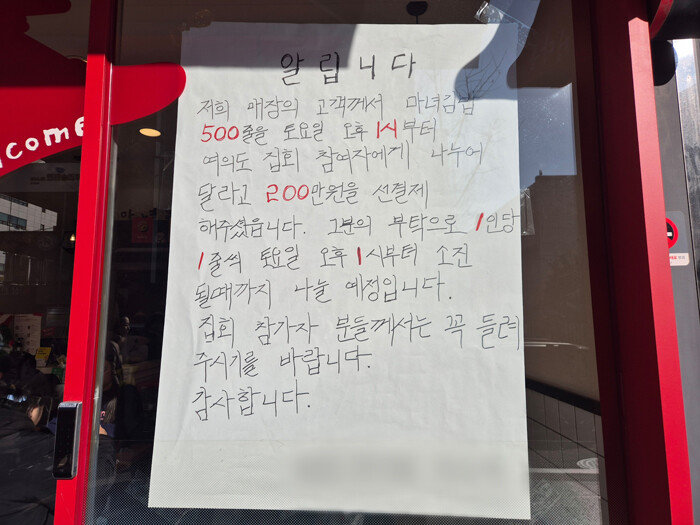 알립니다
저희 매장의 고객께서 마녀김밥
500줄을 토요일 오후 1시부터
여의도 집회 참여자에게 나누어
달라고 200만원을 선결제
해주셨읍니다. 그분의 부탁으로 1인당
1줄씩 토요일 오후 1시부터 소진
될때까지 나눌 예정입니다.
집회 참가자 분들께서는 꼭 들려
주시기를 바랍니다.
감사합니다.
come